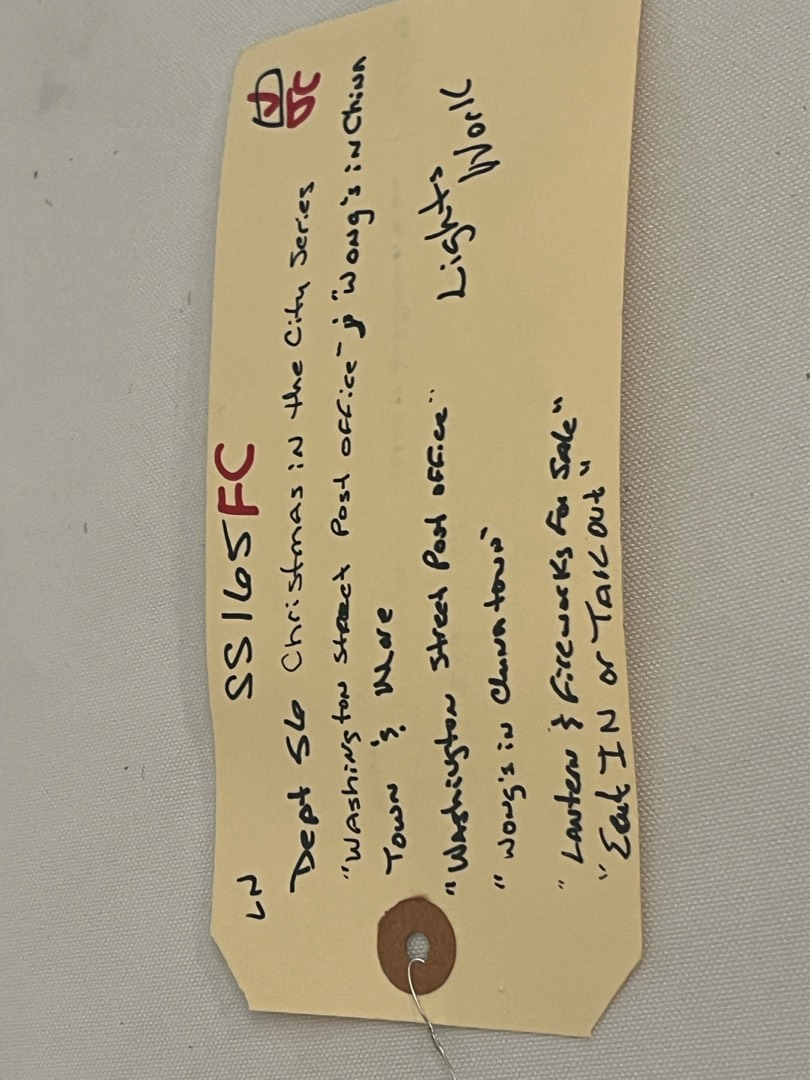 LN SS165FC
Dept 56 Christmas in the City Series
"Washington Street Post office" & "Wong's in China
Town & More
"Washington Street Post office"
"Wong's in Chinatown"
Lights
Work
"Lantern & Fireworks For Sale"
"Eat IN or TAKE OUT"